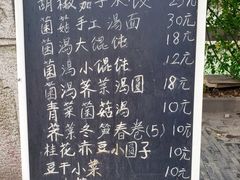 胡椒茄子水饺 25元
菌菇手工汤面 30元
菌汤大倱饨 18元
菌汤小馄饨 12元
菌汤荠菜汤圆 18元
青菜菌菇汤 10元
荠菜冬笋春卷(5) 10元
桂花赤豆小圆子 10元
豆干小菜 10元